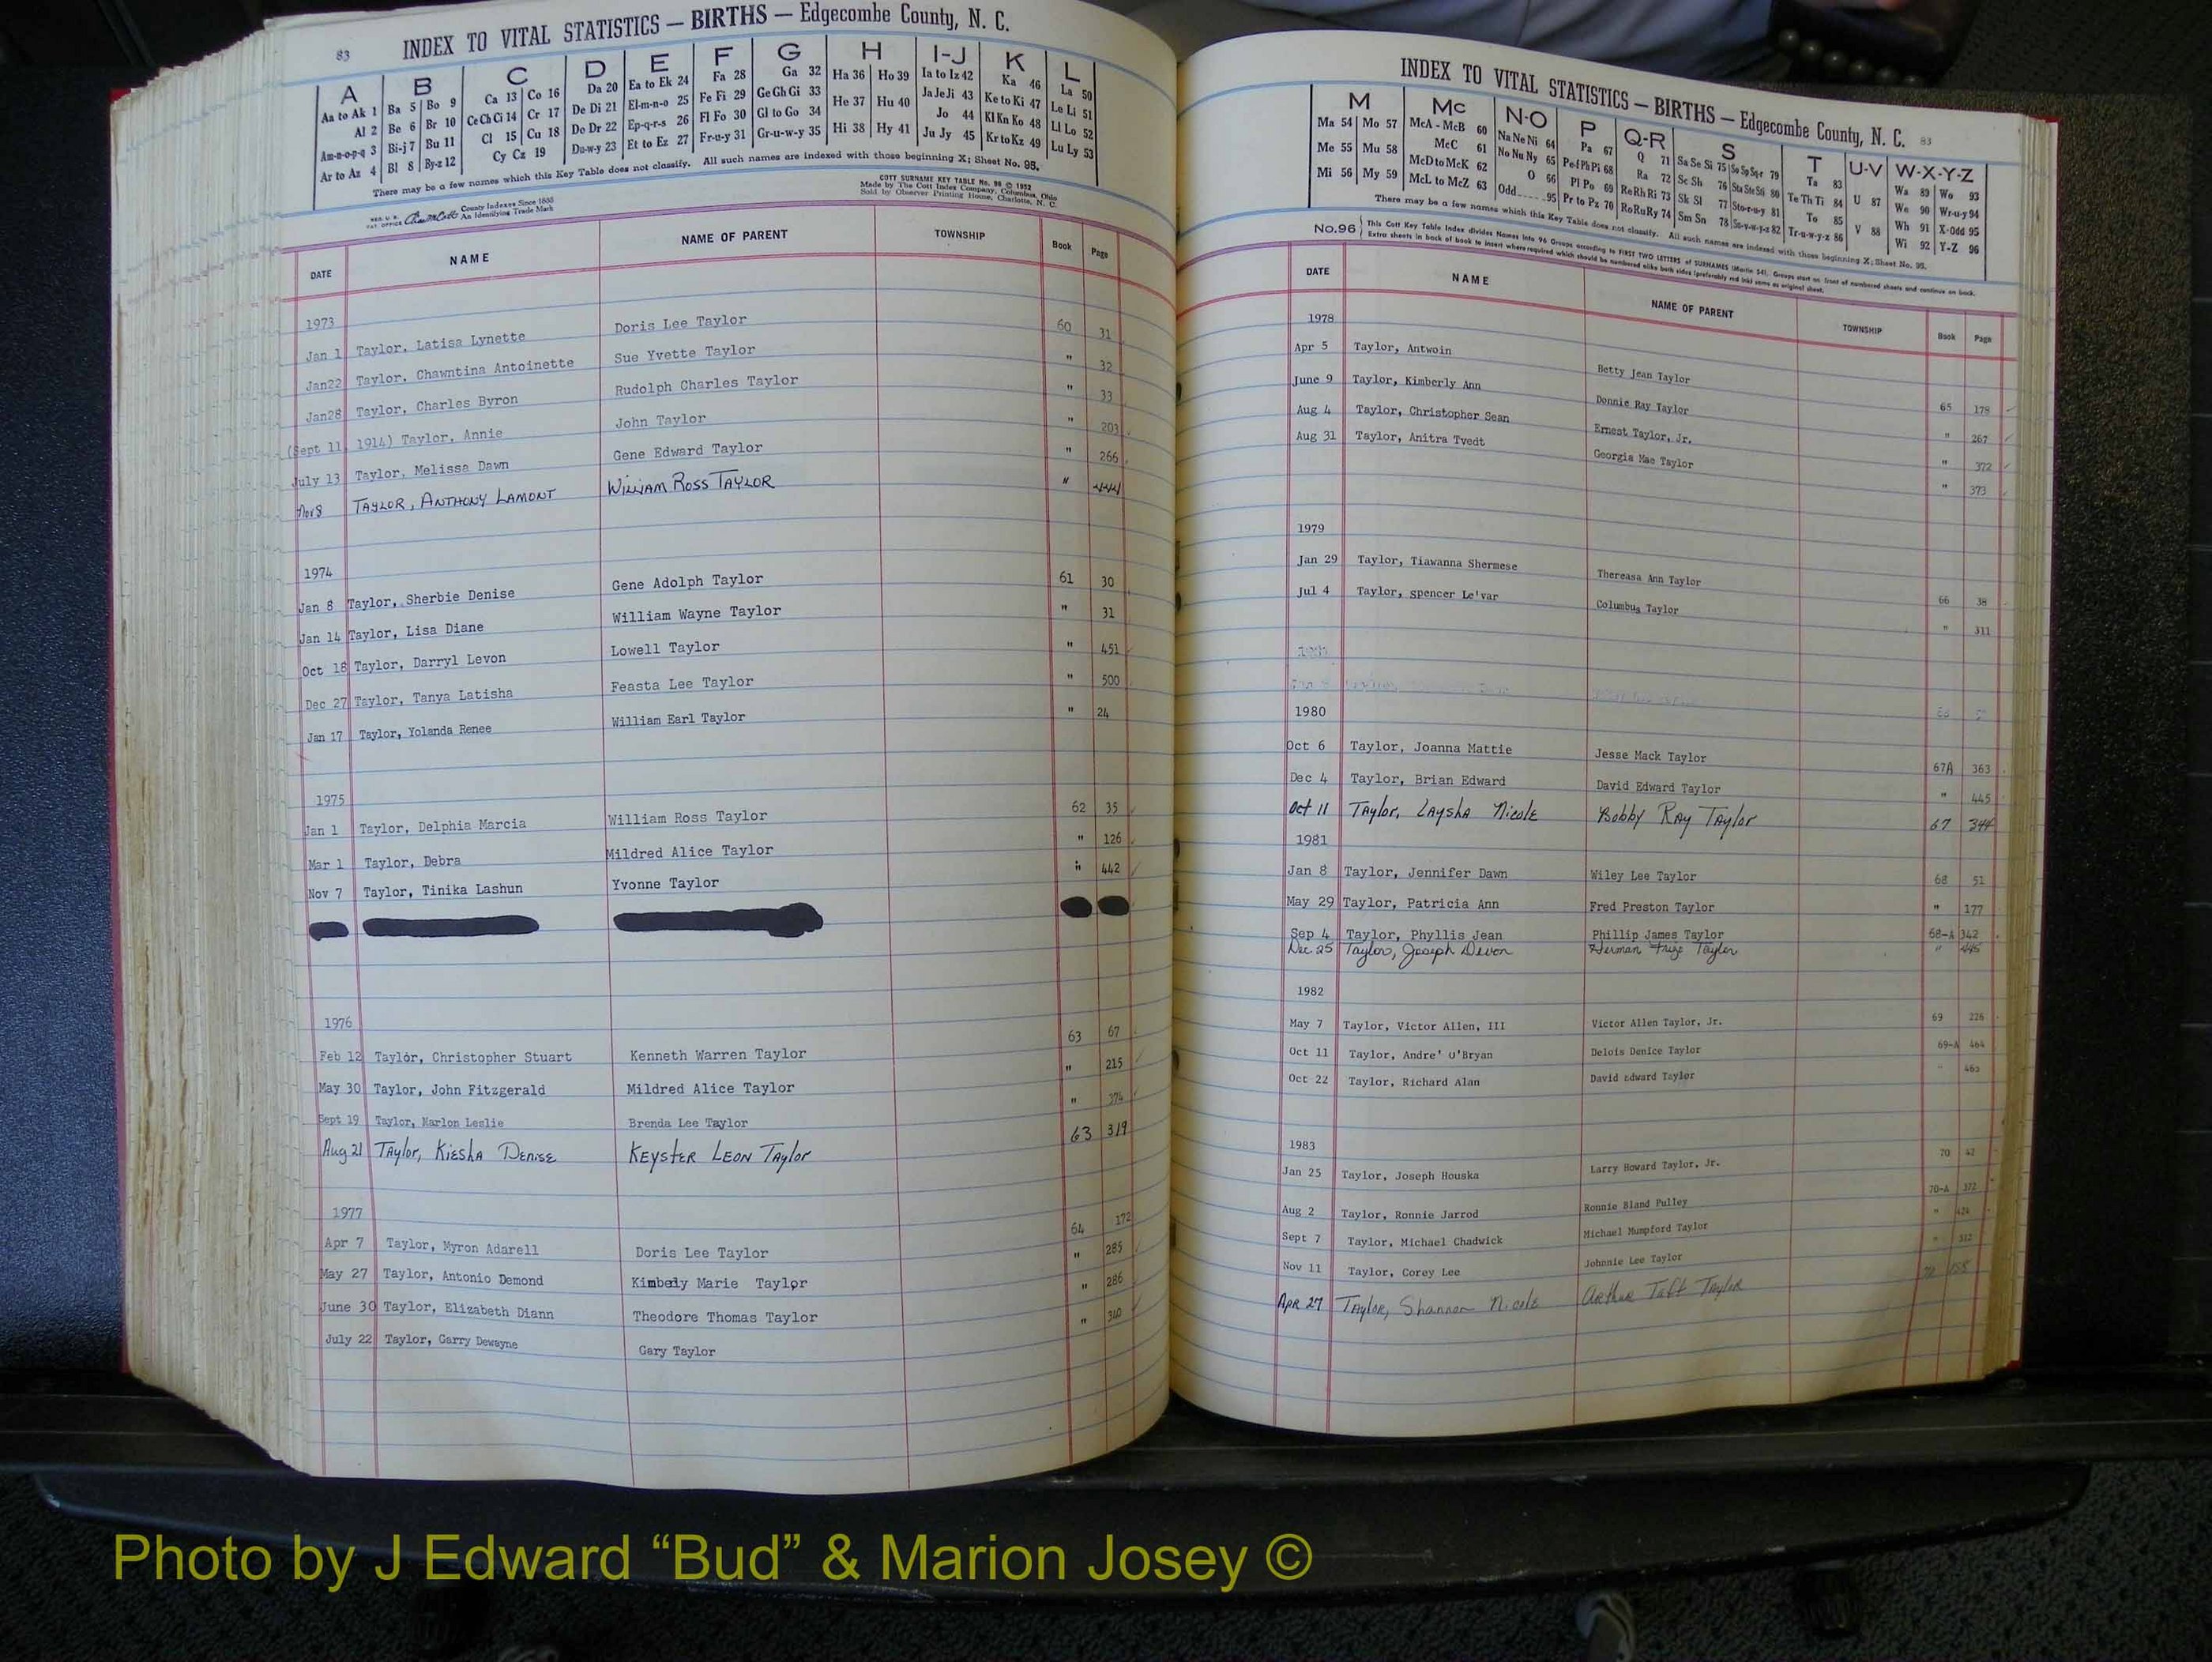 83 INDEX TO VITAL STATISTICS — BIRTHS — Edgecombe County, N. C.
A B C D E F G H I-J K L
Aa to Ak 1 Ba 5 Bo 9 Ca 13 Co 16 Da 20 Ea to Ek 24 Fa 28 Ga 32 Ha 36 Ho 39 Ia to Iz 42 Ka 46 La 50
Al 2 Be 6 Br 10 Ce Ch Ci 14 Cr 17 De Di 21 El-m-n-o 25 Fe Fi 29 Ge Gh Gi 33 He 37 Hu 40 Ja Je Ji 43 Ke to Ki 47 Le Li 51
Am-n-o-p-q 3 Bi-j 7 Bu 11 Cl 15 Cu 18 Do Dr 22 Ep-q-r-s 26 Fl Fo 30 Gl to Go 34 Hi 38 Hy 41 Jo 44 Kl Kn Ko 48 Ll Lo 52
Ar to Az 4 Bl 8 By-z 12 Cy Cz 19 Du-w-y 23 Et to Ez 27 Fr-u-y 31 Gr-u-w-y 35 Ju Jy 45 Kr to Kz 49 Lu Ly 53
There may be a few names which this Key Table does not classify. All such names are indexed with those beginning X; Sheet No. 95.
REG. U. S. PAT. OFFICE County Indexes Since 1888 An Identifying Trade Mark
COTT SURNAME KEY TABLE No. 96 © 1952
Made by The Cott Index Company, Columbus, Ohio
Sold by Observer Printing House, Charlotte, N. C.
DATE NAME NAME OF PARENT TOWNSHIP Book Page
1973
Jan 1 Taylor, Latisa Lynette Doris Lee Taylor 60 31
Jan22 Taylor, Chawntina Antoinette Sue Yvette Taylor " 32
Jan28 Taylor, Charles Byron Rudolph Charles Taylor " 33
(Sept 11, 1914) Taylor, Annie John Taylor " 203
July 13 Taylor, Melissa Dawn Gene Edward Taylor " 266
Nov 8 TAYLOR, ANTHONY LAMONT WILLIAM ROSS TAYLOR " 444
1974
Jan 8 Taylor, Sherbie Denise Gene Adolph Taylor 61 30
Jan 14 Taylor, Lisa Diane William Wayne Taylor " 31
Oct 18 Taylor, Darryl Levon Lowell Taylor " 451
Dec 27 Taylor, Tanya Latisha Feasta Lee Taylor " 500
Jan 17 Taylor, Yolanda Renee William Earl Taylor " 24
1975
Jan 1 Taylor, Delphia Marcia William Ross Taylor 62 35
Mar 1 Taylor, Debra Mildred Alice Taylor " 126
Nov 7 Taylor, Tinika Lashun Yvonne Taylor " 442
1976
Feb 12 Taylor, Christopher Stuart Kenneth Warren Taylor 63 67
May 30 Taylor, John Fitzgerald Mildred Alice Taylor " 215
Sept 19 Taylor, Marlon Leslie Brenda Lee Taylor " 374
Aug 21 Taylor, Kiesha Denise Keyster Leon Taylor 63 319
1977
Apr 7 Taylor, Myron Adarell Doris Lee Taylor 64 172
May 27 Taylor, Antonio Demond Kimbely Marie Taylor " 285
June 30 Taylor, Elizabeth Diann Theodore Thomas Taylor " 286
July 22 Taylor, Garry Dewayne Gary Taylor " 340
INDEX TO VITAL STATISTICS — BIRTHS — Edgecombe County, N. C. 83
M Mc N-O P Q-R S T U-V W-X-Y-Z
Ma 54 Mo 57 McA - McB 60 Na Ne Ni 64 Pa 67 Q 71 Sa Se Si 75 So Sp Sq-r 79 Ta 83 U 87 Wa 89 Wo 93
Me 55 Mu 58 McC 61 No Nu Ny 65 Pe-f Ph Pi 68 Ra 72 Sc Sh 76 Sta Ste Sti 80 Te Th Ti 84 We 90 Wr-u-y 94
Mi 56 My 59 McD to McK 62 O 66 Pl Po 69 Re Rh Ri 73 Sk Sl 77 Sto-r-u-y 81 To 85 V 88 Wh 91 X-Odd 95
McL to McZ 63 Odd 95 Pr to Pz 70 Ro Ru Ry 74 Sm Sn 78 Su-v-w-y-z 82 Tr-u-w-y-z 86 Wi 92 Y-Z 96
There may be a few names which this Key Table does not classify. All such names are indexed with those beginning X; Sheet No. 95.
No.96 This Cott Key Table Index divides Names into 96 Groups according to FIRST TWO LETTERS of SURNAMES (Martin 54). Groups start on front of numbered sheets and continue on back.
Extra sheets in back of book to insert where required which should be numbered alike both sides (preferably red ink) same as original sheet.
DATE NAME NAME OF PARENT TOWNSHIP Book Page
1978
Apr 5 Taylor, Antwoin Betty Jean Taylor 65 178
June 9 Taylor, Kimberly Ann Donnie Ray Taylor " 267
Aug 4 Taylor, Christopher Sean Ernest Taylor, Jr. " 372
Aug 31 Taylor, Anitra Tvedt Georgia Mae Taylor " 373
1979
Jan 29 Taylor, Tiawanna Shermese Thereasa Ann Taylor 66 38
Jul 4 Taylor, Spencer Le'var Columbus Taylor " 311
1980
Oct 6 Taylor, Joanna Mattie Jesse Mack Taylor 67A 363
Dec 4 Taylor, Brian Edward David Edward Taylor " 445
Oct 11 Taylor, Laysha Nicole Bobby Ray Taylor 67 344
1981
Jan 8 Taylor, Jennifer Dawn Wiley Lee Taylor 68 51
May 29 Taylor, Patricia Ann Fred Preston Taylor " 177
Sep 4 Taylor, Phyllis Jean Phillip James Taylor 68-A 342
Dec 25 Taylor, Joseph Devon Herman Taylor " 445
1982
May 7 Taylor, Victor Allen, III Victor Allen Taylor, Jr. 69 226
Oct 11 Taylor, Andre' O'Bryan Delois Denice Taylor 69-A 464
Oct 22 Taylor, Richard Alan David Edward Taylor " 465
1983
Jan 25 Taylor, Joseph Houska Larry Howard Taylor, Jr. 70 42
Aug 2 Taylor, Ronnie Jarrod Ronnie Bland Pulley 70-A 372
Sept 7 Taylor, Michael Chadwick Michael Mumpford Taylor " 424
Nov 11 Taylor, Corey Lee Johnnie Lee Taylor " 312
Apr 27 Taylor, Shannon Nicole Arthur Taft Taylor 70
Photo by J Edward “Bud” & Marion Josey ©